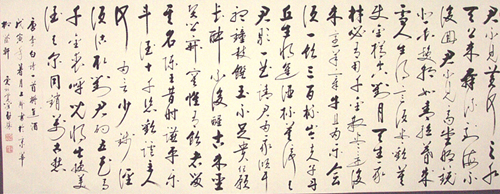 君不見黃河之水
天上來奔流到海不
復回君不見高堂明鏡
悲白髮朝如青絲暮成
雪人生得意須盡歡莫
使金樽空對月天生我
材必有用千金散盡還復
來烹羊宰牛且為樂會
須一飲三百杯岑夫子丹
丘生將進酒杯莫停與
君歌一曲請君為我傾耳
聽鐘鼓饌玉不足貴但願
長醉不復醒古來聖
賢皆寂寞惟有飲者留
其名陳王昔時宴平樂
斗酒十千恣歡謔主人
何為言少錢徑
須沽取對君酌五花馬
千金裘呼兒將出換美
酒與爾同銷萬古愁
唐李白詩一首將進酒